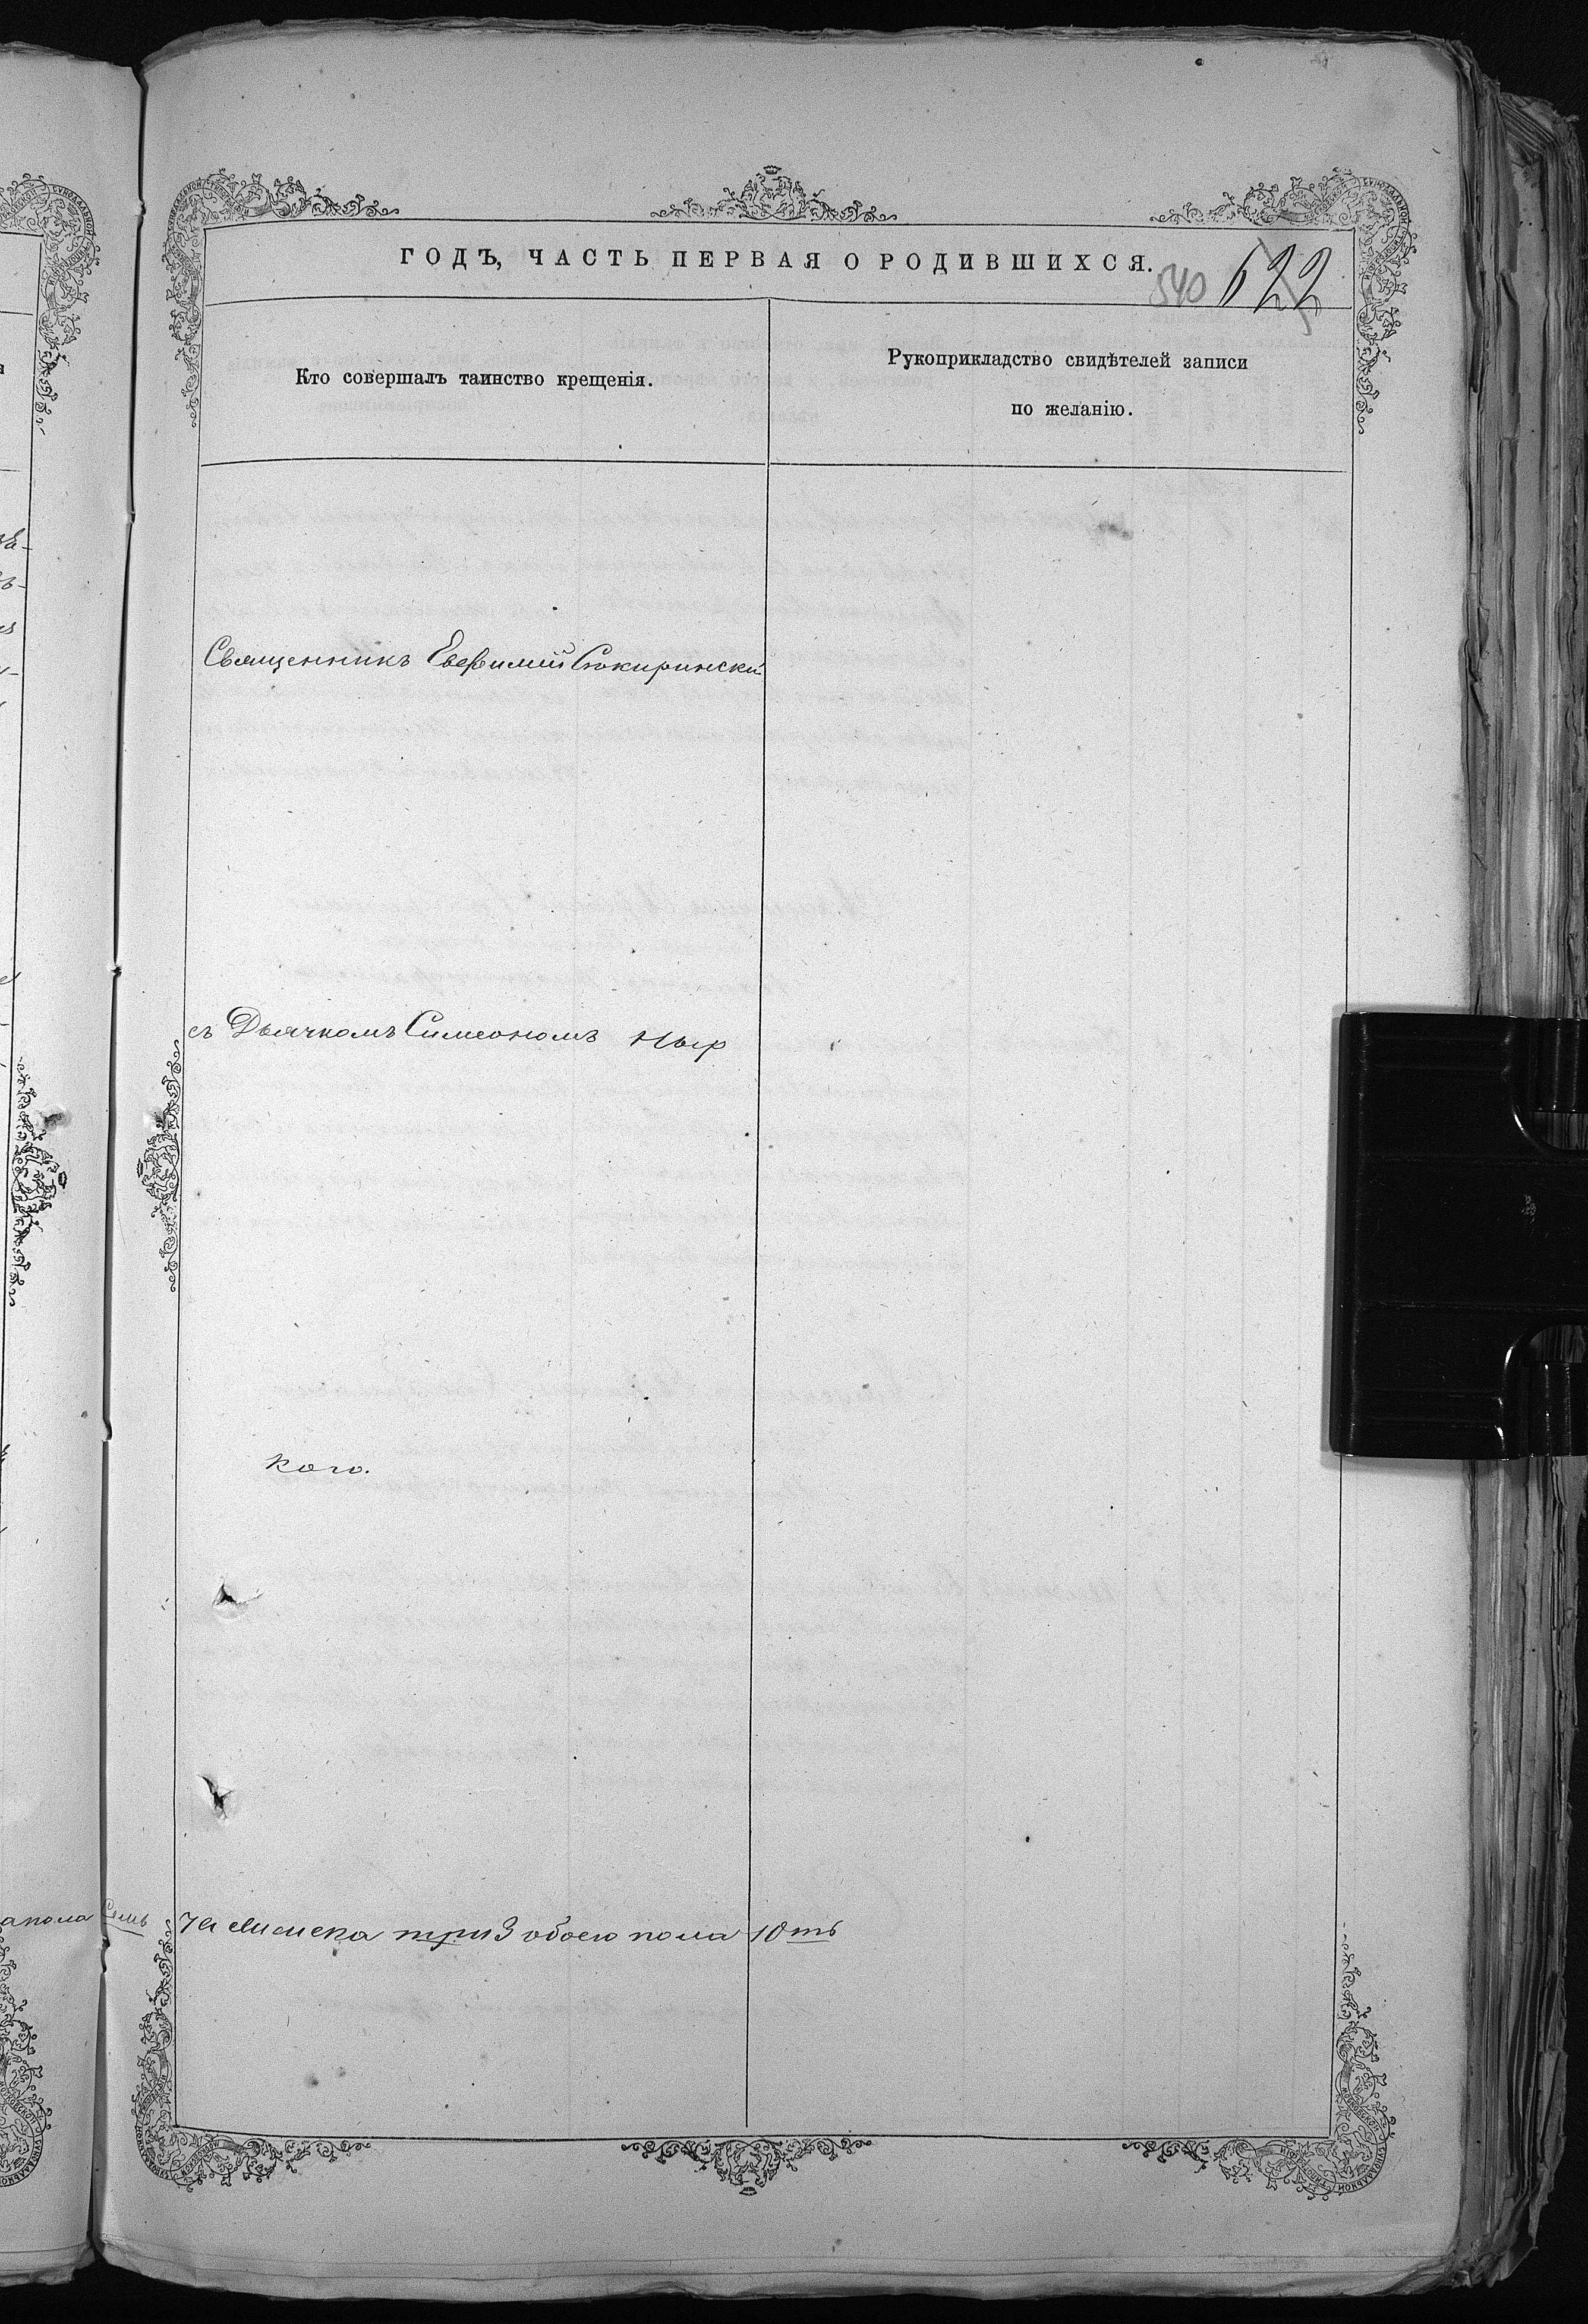 ГОДЪ, ЧАСТЬ ПЕРВАЯ О РОДИВШИХСЯ.
540 622
Кто совершалъ таинство крещенія.
Рукоприкладство свидѣтелей записи
по желанію.
Священникъ Евѳимій Сокиринскій
съ Дьячкомъ Симеономъ Ныр
кого.
апола Семь
7 а женска три 3 обоего пола 10ть